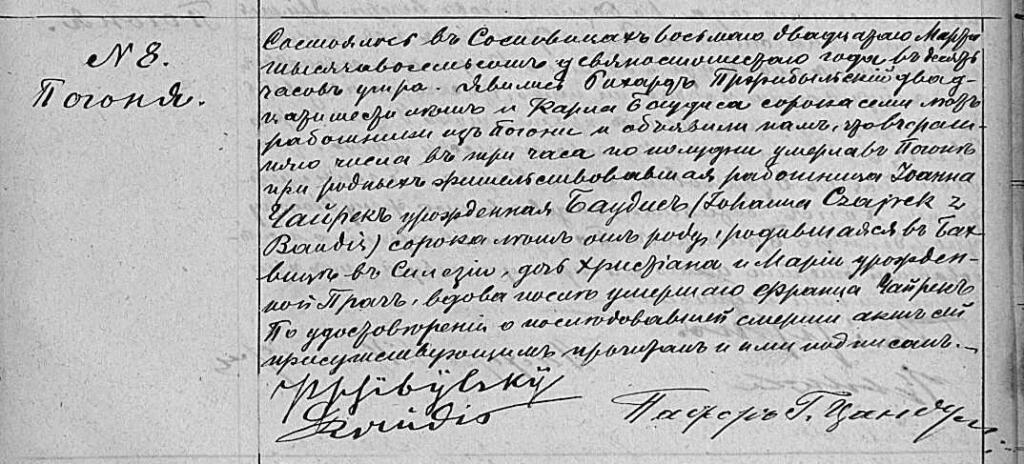 N 8.
Погоня.
Состоялось въ Сосновицахъ восьмаго двадцатаго Марта
тысяча восемьсотъ девяностошестаго года въ десять
часовъ утра. Явились Рихардъ Пржибыльский двад-
цати шести лѣтъ и Карлъ Баудисъ сорока семи лѣтъ
работники изъ Погони и объявили намъ, что въчераш-
няго числа въ три часа по полудни умерла въ Погонѣ
при родныхъ жительствовавшая работница Іоанна
Чайрекъ урожденная Баудисъ (Johanna Czajrek z
Baudis) сорока лѣтъ отъ роду, родившаяся въ Бах-
вицѣ въ Силезіи, дочь Христіана и Маріи урожден-
ной Прачъ, вдова послѣ умершаго Франца Чайрекъ
По удостовѣреніи о послѣдовавшей смерти актъ сей
присутствующимъ прочитанъ и ими подписанъ.
Pržibÿlskÿ
Baudis
Пасторъ Г. Цандеръ